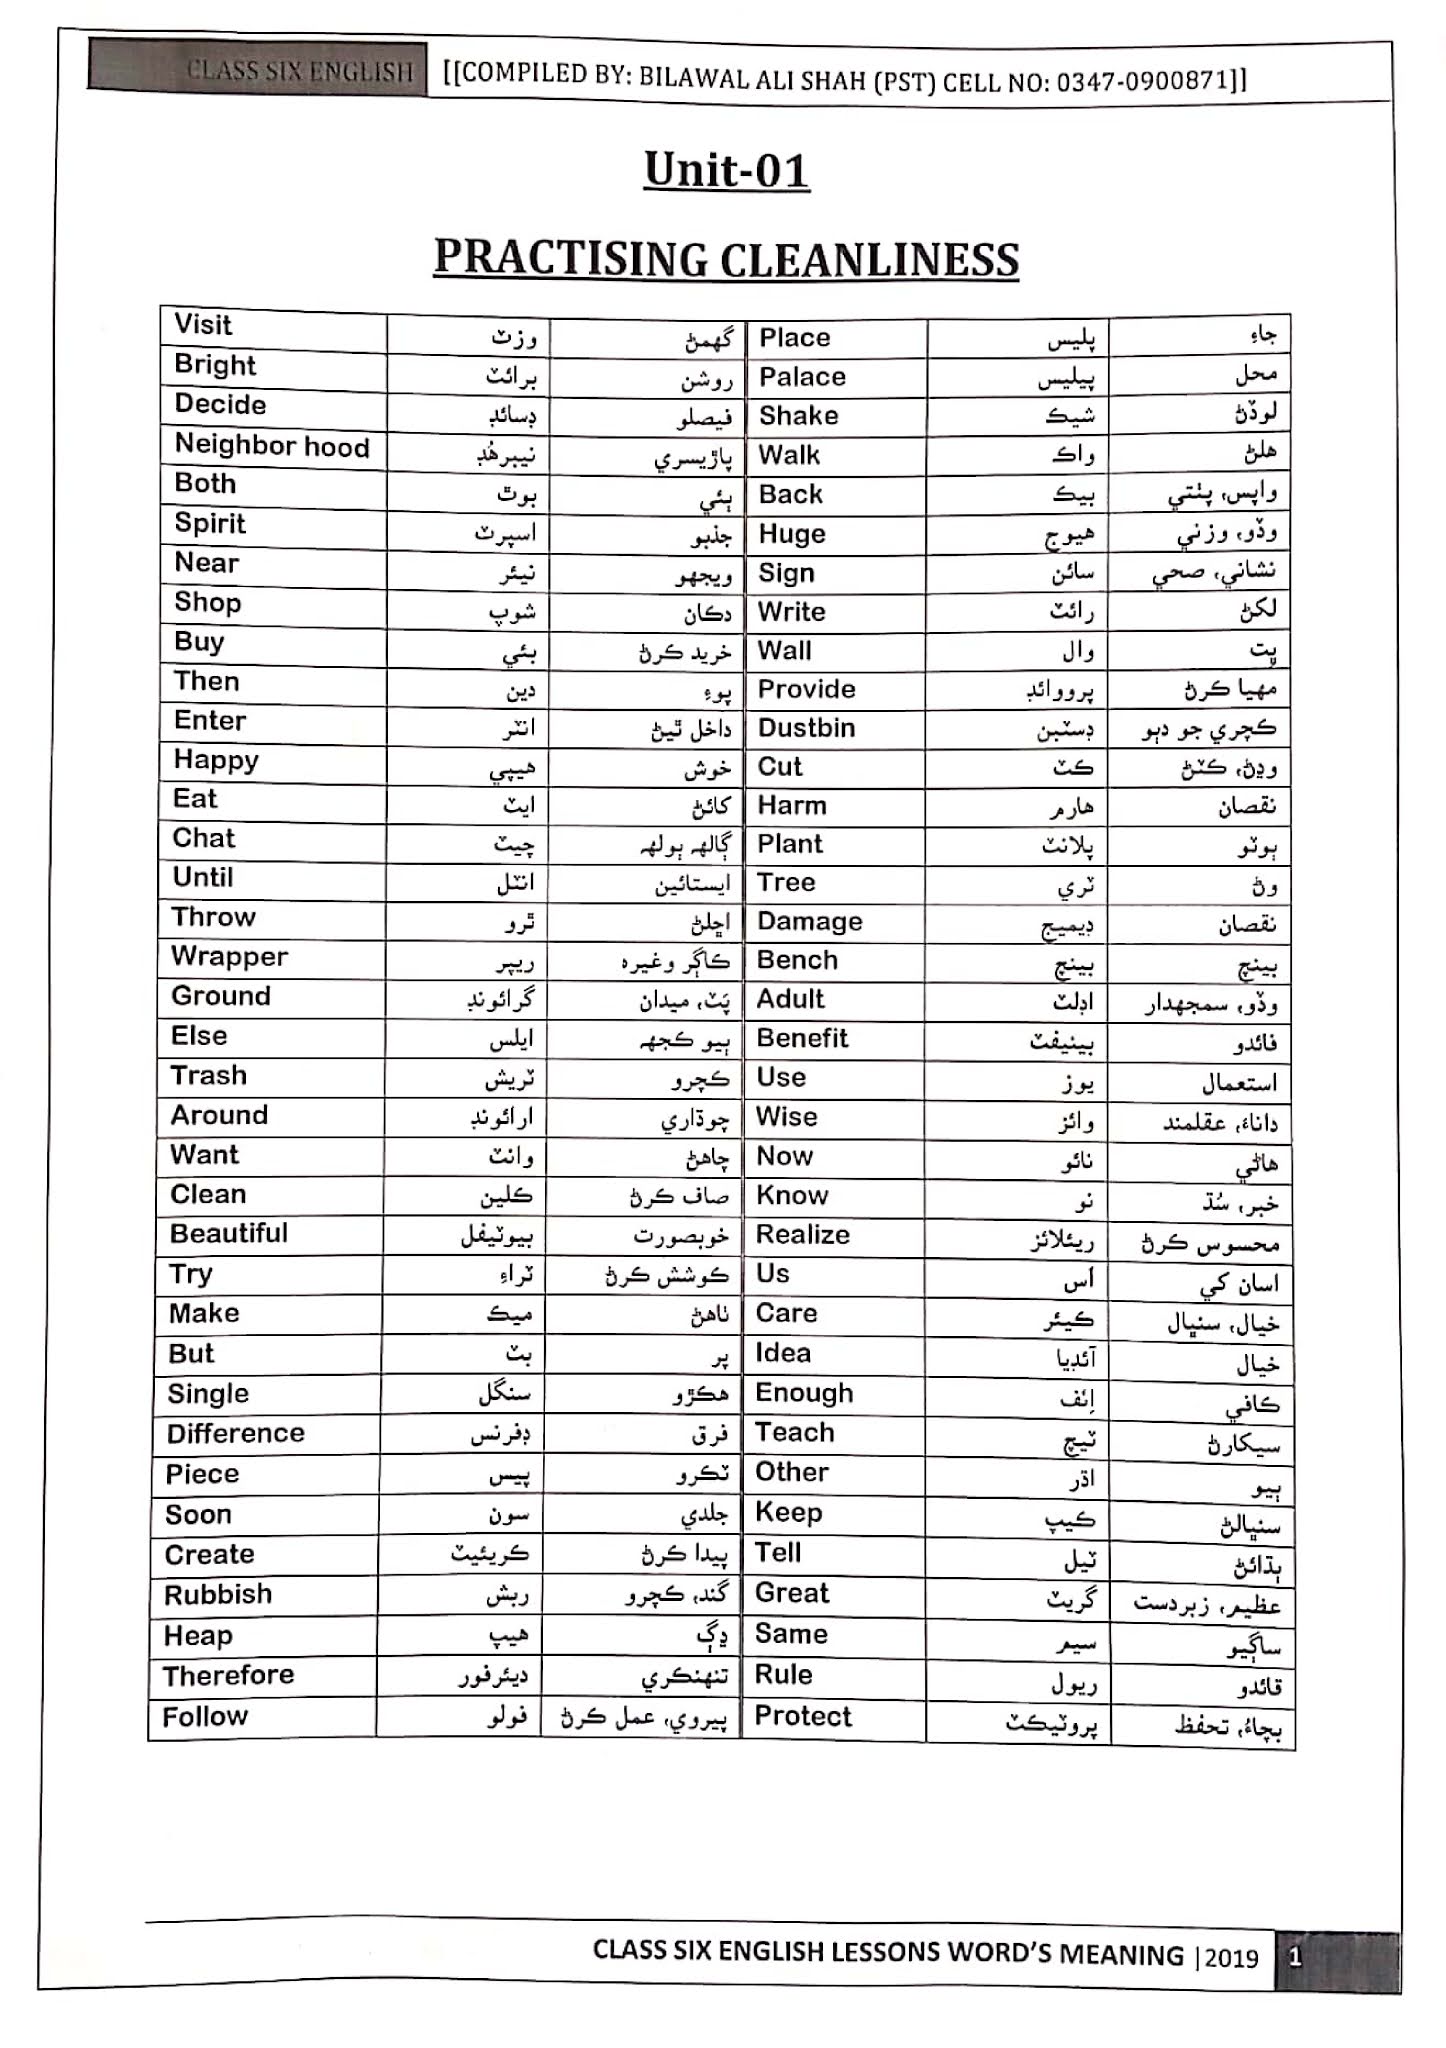 CLASS SIX ENGLISH [[COMPILED BY: BILAWAL ALI SHAH (PST) CELL NO: 0347-0900871]]
Unit-01
PRACTISING CLEANLINESS
Visit وزٽ گھمڻ Place پليس جاءِ
Bright برائٽ روشن Palace پيليس محل
Decide ڊسائڊ فيصلو Shake شيڪ لوڏڻ
Neighbor hood نيبرهُڊ پاڙيسري Walk واڪ هلڻ
Both بوٿ ٻئي Back بيڪ واپس، پٺتي
Spirit اسپرٽ جذبو Huge هيوج وڏو، وزني
Near نيئر ويجهو Sign سائن نشاني، صحي
Shop شوپ دڪان Write رائٽ لکڻ
Buy بئي خريد ڪرڻ Wall وال ڀت
Then دين پوءِ Provide پرووائڊ مهيا ڪرڻ
Enter انٽر داخل ٿيڻ Dustbin ڊسٽبن ڪچري جو دٻو
Happy هيپي خوش Cut ڪٽ وڍڻ، ڪٽڻ
Eat ايٽ کائڻ Harm هارم نقصان
Chat چيٽ ڳالهہ ٻولهہ Plant پلانٽ ٻوٽو
Until انٽل ايستائين Tree ٽري وڻ
Throw ٿرو اڇلڻ Damage ڊيميج نقصان
Wrapper ريپر ڪاڳر وغيره Bench بينچ بينچ
Ground گرائونڊ پَٽ، ميدان Adult اڊلٽ وڏو، سمجهدار
Else ايلس ٻيو ڪجهہ Benefit بينيفٽ فائدو
Trash ٽريش ڪچرو Use يوز استعمال
Around ارائونڊ چوڌاري Wise وائز داناءُ، عقلمند
Want وانٽ چاهڻ Now نائو هاڻي
Clean ڪلين صاف ڪرڻ Know نو خبر، سُڌ
Beautiful بيوٽيفل خوبصورت Realize ريئلائز محسوس ڪرڻ
Try ٽراءِ ڪوشش ڪرڻ Us اَس اسان کي
Make ميڪ ٺاهڻ Care ڪيئر خيال، سنڀال
But بٽ پر Idea آئڊيا خيال
Single سنگل هڪڙو Enough اِنَف ڪافي
Difference ڊفرنس فرق Teach ٽيچ سيکارڻ
Piece پيس ٽڪرو Other ادَر ٻيو
Soon سون جلدي Keep ڪيپ سنڀالڻ
Create ڪريئيٽ پيدا ڪرڻ Tell ٽيل ٻڌائڻ
Rubbish ربش گند، ڪچرو Great گريٽ عظيم، زبردست
Heap هيپ ڍڳ Same سيم ساڳيو
Therefore ديئرفور تنهنڪري Rule ريول قائدو
Follow فولو پيروي، عمل ڪرڻ Protect پروٽيڪٽ بچاءُ، تحفظ
CLASS SIX ENGLISH LESSONS WORD'S MEANING | 2019 1